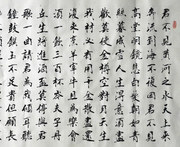 君不見黃河之水天上來
奔流到海不復回君不見
高堂明鏡悲白髮朝如青
絲暮成雪人生得意須盡
歡莫使金樽空對月天生
我材必有用千金散盡還
復來烹羊宰牛且為樂會
須一飲三百杯岑夫子丹
丘生將進酒杯莫停與君
歌一曲請君為我傾耳聽
鐘鼓饌玉不足貴但願長